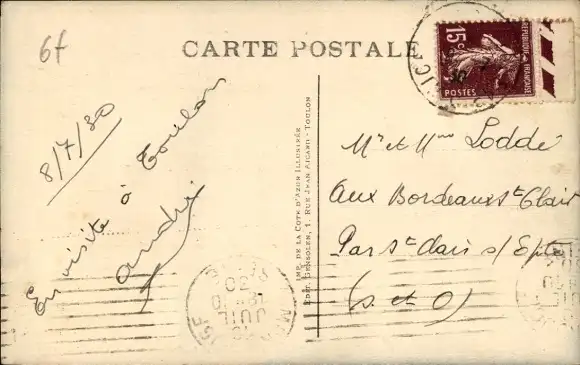 6f
CARTE POSTALE
RÉPUBLIQUE FRANÇAISE
15c
POSTES
8/7/30
En visite à Toulon
André
IMP. DE LA COTE D'AZUR ILLUSTRÉE
EDIT. GENSOLEN, 1, RUE JEAN AICARD - TOULON
Mr et Mme Loddé
Aux Bordeaux St Clair
Par St Clair s/ Epte
(S. et O)
JUIL
30